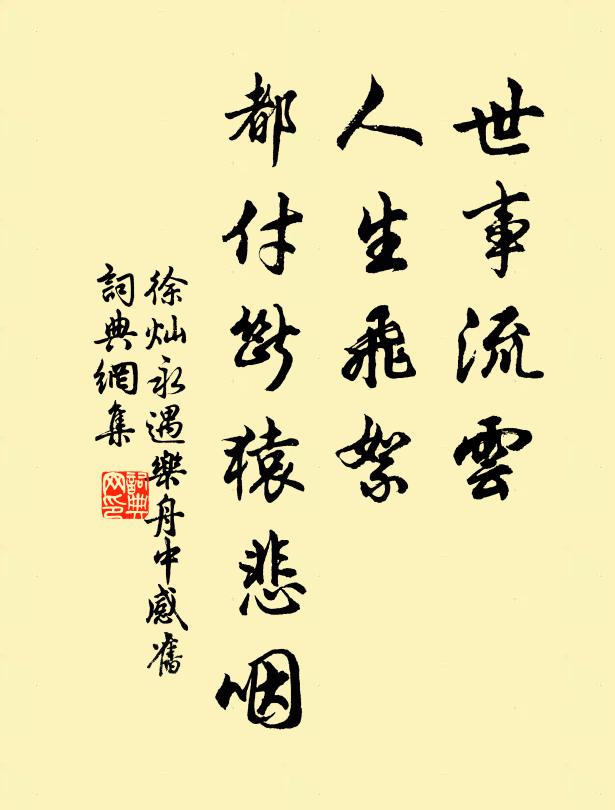 世事流雲
人生飛絮
都付斷猿悲咽
徐灿永遇樂舟中感舊
詞典網集
詞典